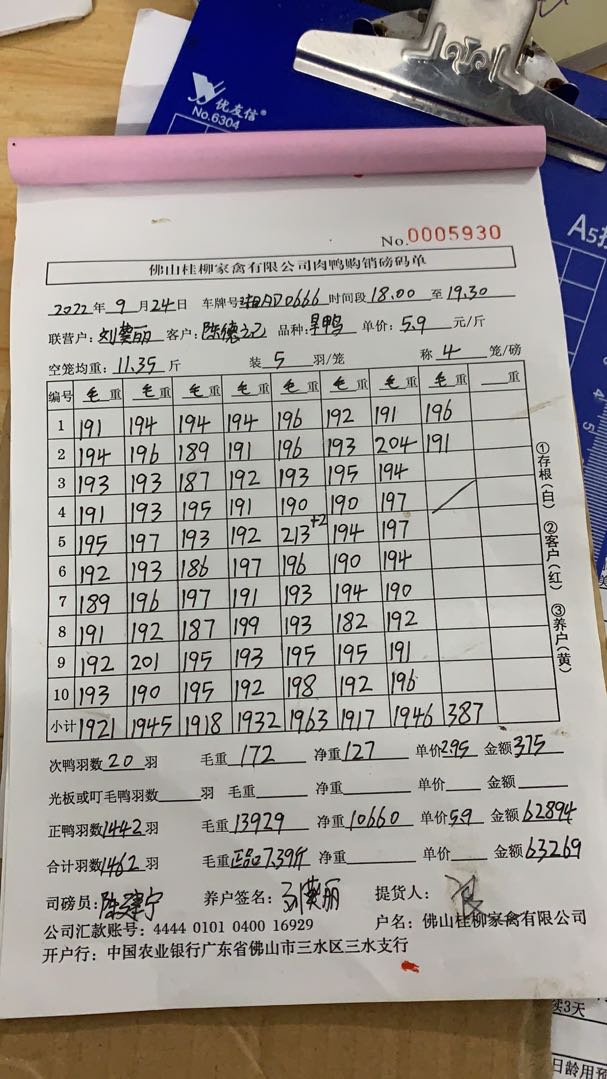 优友信®
No.6304
A5
No.0005930
佛山桂柳家禽有限公司肉鸭购销磅码单
2022年9月24日 车牌号 D0666 时间段 18.00 至 19.30
联营户: 刘 丽 客户: 陈德 品种: 旱鸭 单价: 5.9 元/斤
空笼均重: 11.35 斤 装 5 羽/笼 称 4 笼/磅
编号 毛重 毛重 毛重 毛重 毛重 毛重 毛重 毛重 重
1 191 194 194 194 196 192 191 196
2 194 196 189 191 196 193 204 191
3 193 193 187 192 193 195 194
4 191 193 195 191 190 190 197
5 195 197 193 192 213+2 194 197
6 192 193 186 197 196 190 194
7 189 196 197 191 193 194 190
8 191 192 187 199 193 182 192
9 192 201 195 193 195 195 191
10 193 190 195 192 198 192 196
小计 1921 1945 1918 1932 1963 1917 1946 387
①存根(白) ②客户(红) ③养户(黄)
次鸭羽数 20 羽 毛重 172 净重 127 单价 2.95 金额 375
光板或叮毛鸭羽数 羽 毛重 净重 单价 金额
正鸭羽数 1442 羽 毛重 13929 净重 10660 单价 5.9 金额 62894
合计羽数 1462 羽 毛重 正品 7.39斤 净重 单价 金额 63269
司磅员: 陈 宁 养户签名: 刘 丽 提货人:
公司汇款账号: 4444 0101 0400 16929 户名: 佛山桂柳家禽有限公司
开户行: 中国农业银行广东省佛山市三水区三水支行
卖3天
日龄用预